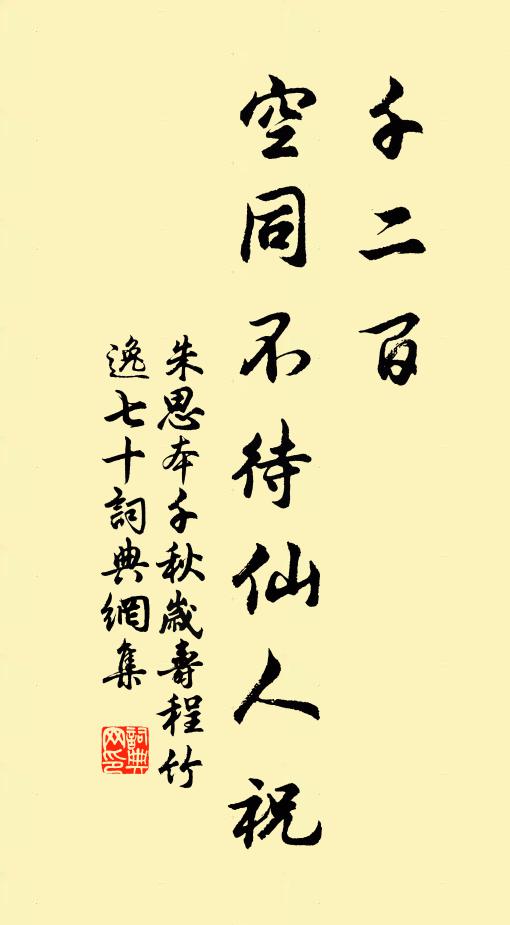 千二百
空同不待仙人祝
朱思本千秋歲壽程竹
逸七十詞典網集
詞典網印